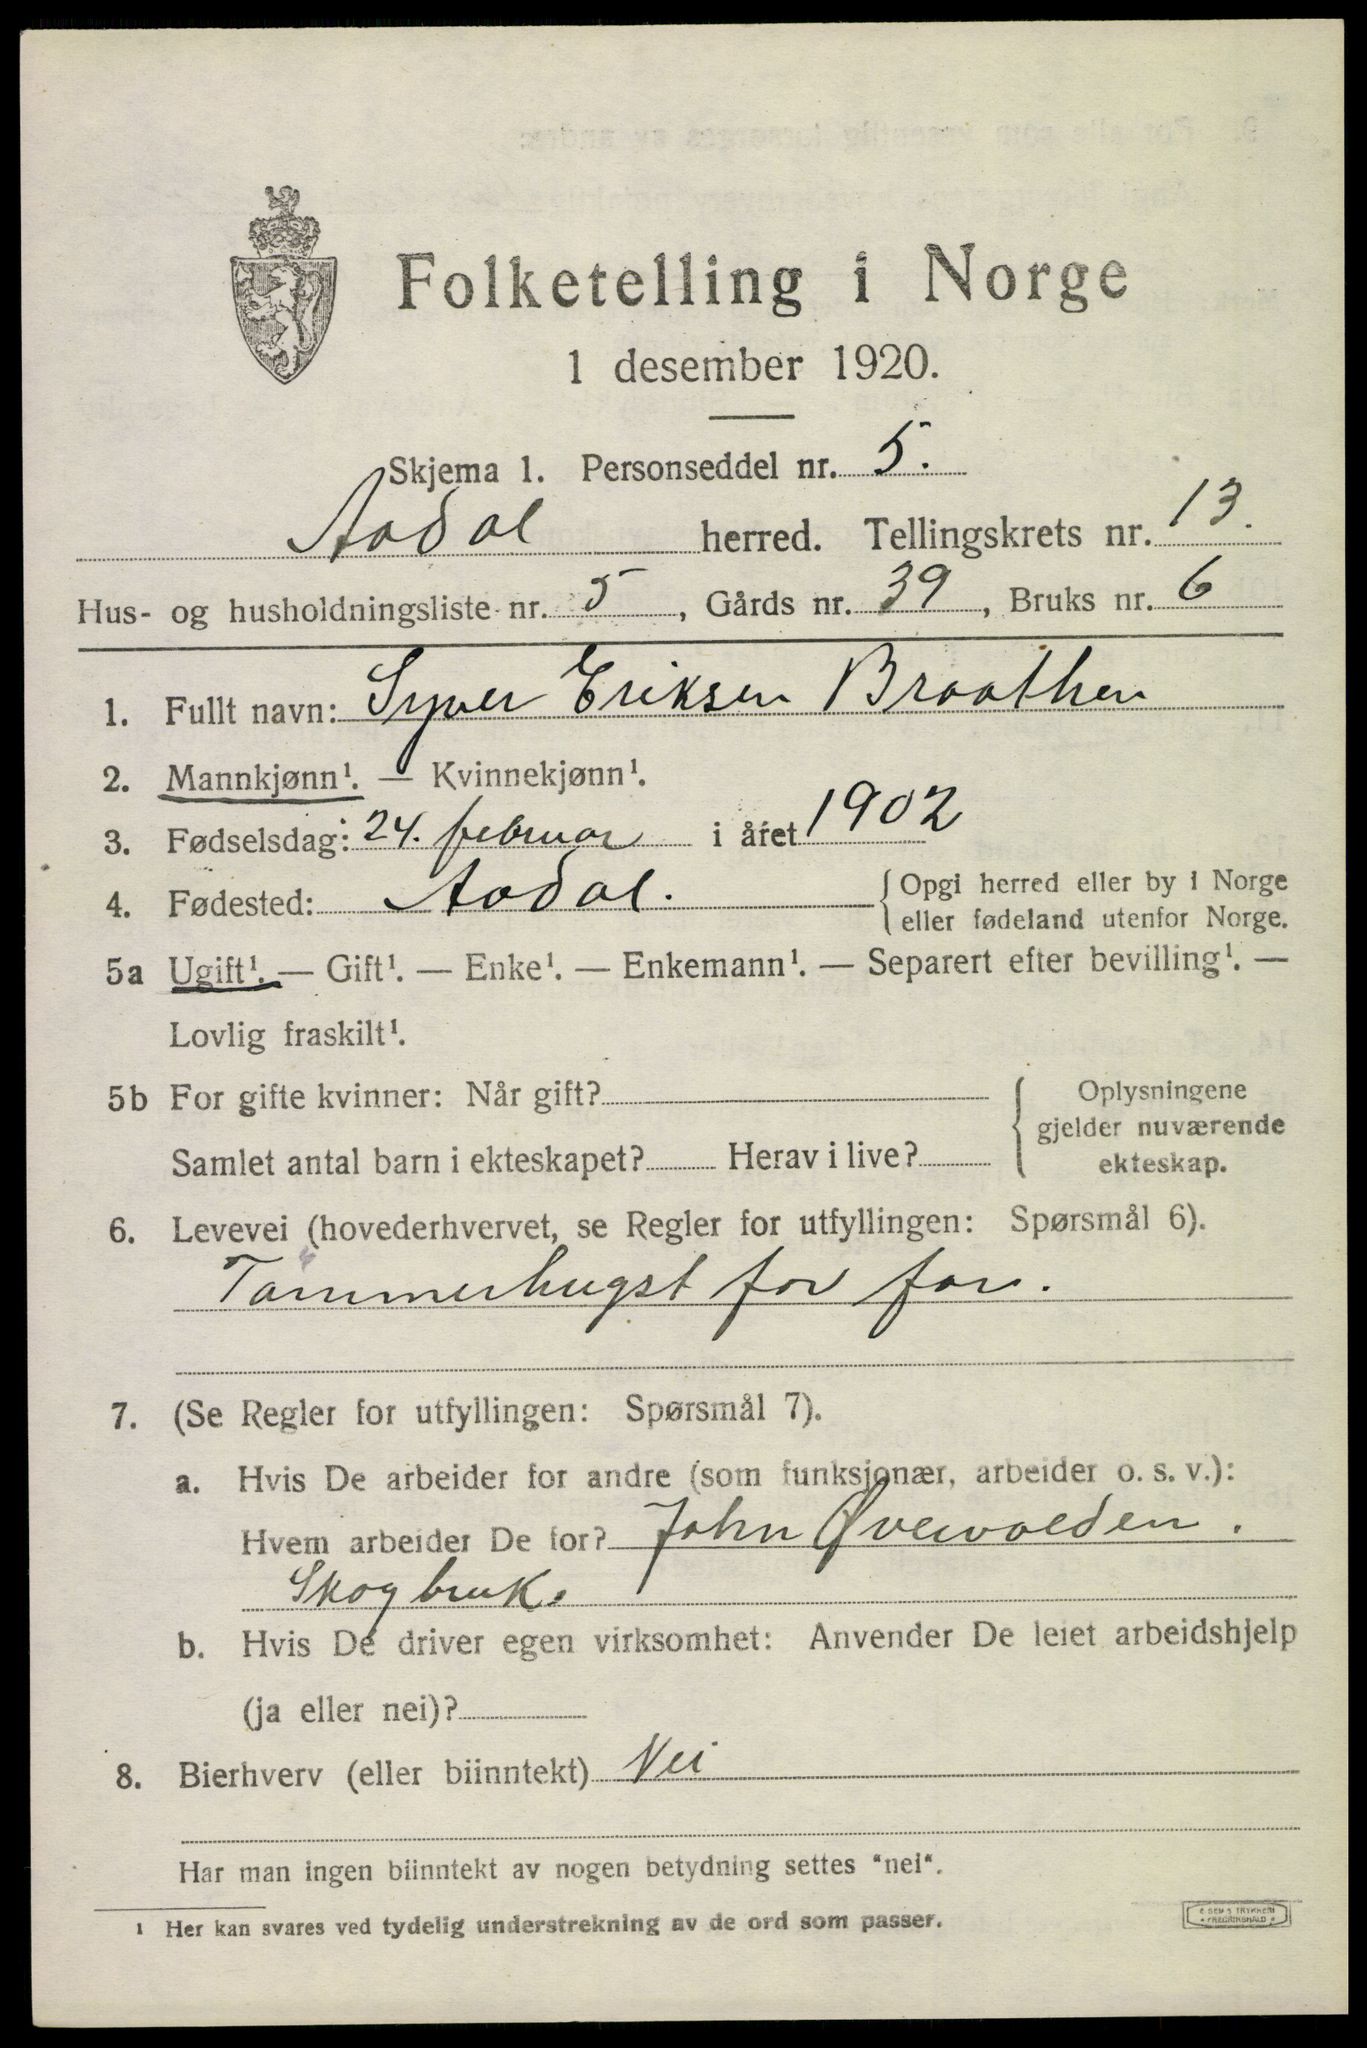 Folketelling i Norge
1 desember 1920.
Skjema 1. Personseddel nr. 5.
Aadal herred. Tellingskrets nr. 13.
Hus- og husholdningsliste nr. 5, Gårds nr. 39, Bruks nr. 6
1. Fullt navn: Syver Eriksen Braathen
2. Mannkjønn¹. — Kvinnekjønn¹.
3. Fødselsdag: 24. februar i året 1902
4. Fødested: Aadal. { Opgi herred eller by i Norge
eller fødeland utenfor Norge.
5a Ugift¹. — Gift¹. — Enke¹. — Enkemann¹. — Separert efter bevilling¹. —
Lovlig fraskilt¹.
5b For gifte kvinner: Når gift? { Oplysningene
gjelder nuværende
Samlet antal barn i ekteskapet? Herav i live? ekteskap.
6. Levevei (hovederhvervet, se Regler for utfyllingen: Spørsmål 6).
Tømmerhugst for far.
7. (Se Regler for utfyllingen: Spørsmål 7).
a. Hvis De arbeider for andre (som funksjonær, arbeider o. s. v.):
Hvem arbeider De for? John
Skogbruk.
b. Hvis De driver egen virksomhet: Anvender De leiet arbeidshjelp
(ja eller nei)?
8. Bierhverv (eller biinntekt) Nei
Har man ingen biinntekt av nogen betydning settes "nei".
¹ Her kan svares ved tydelig understrekning av de ord som passer.